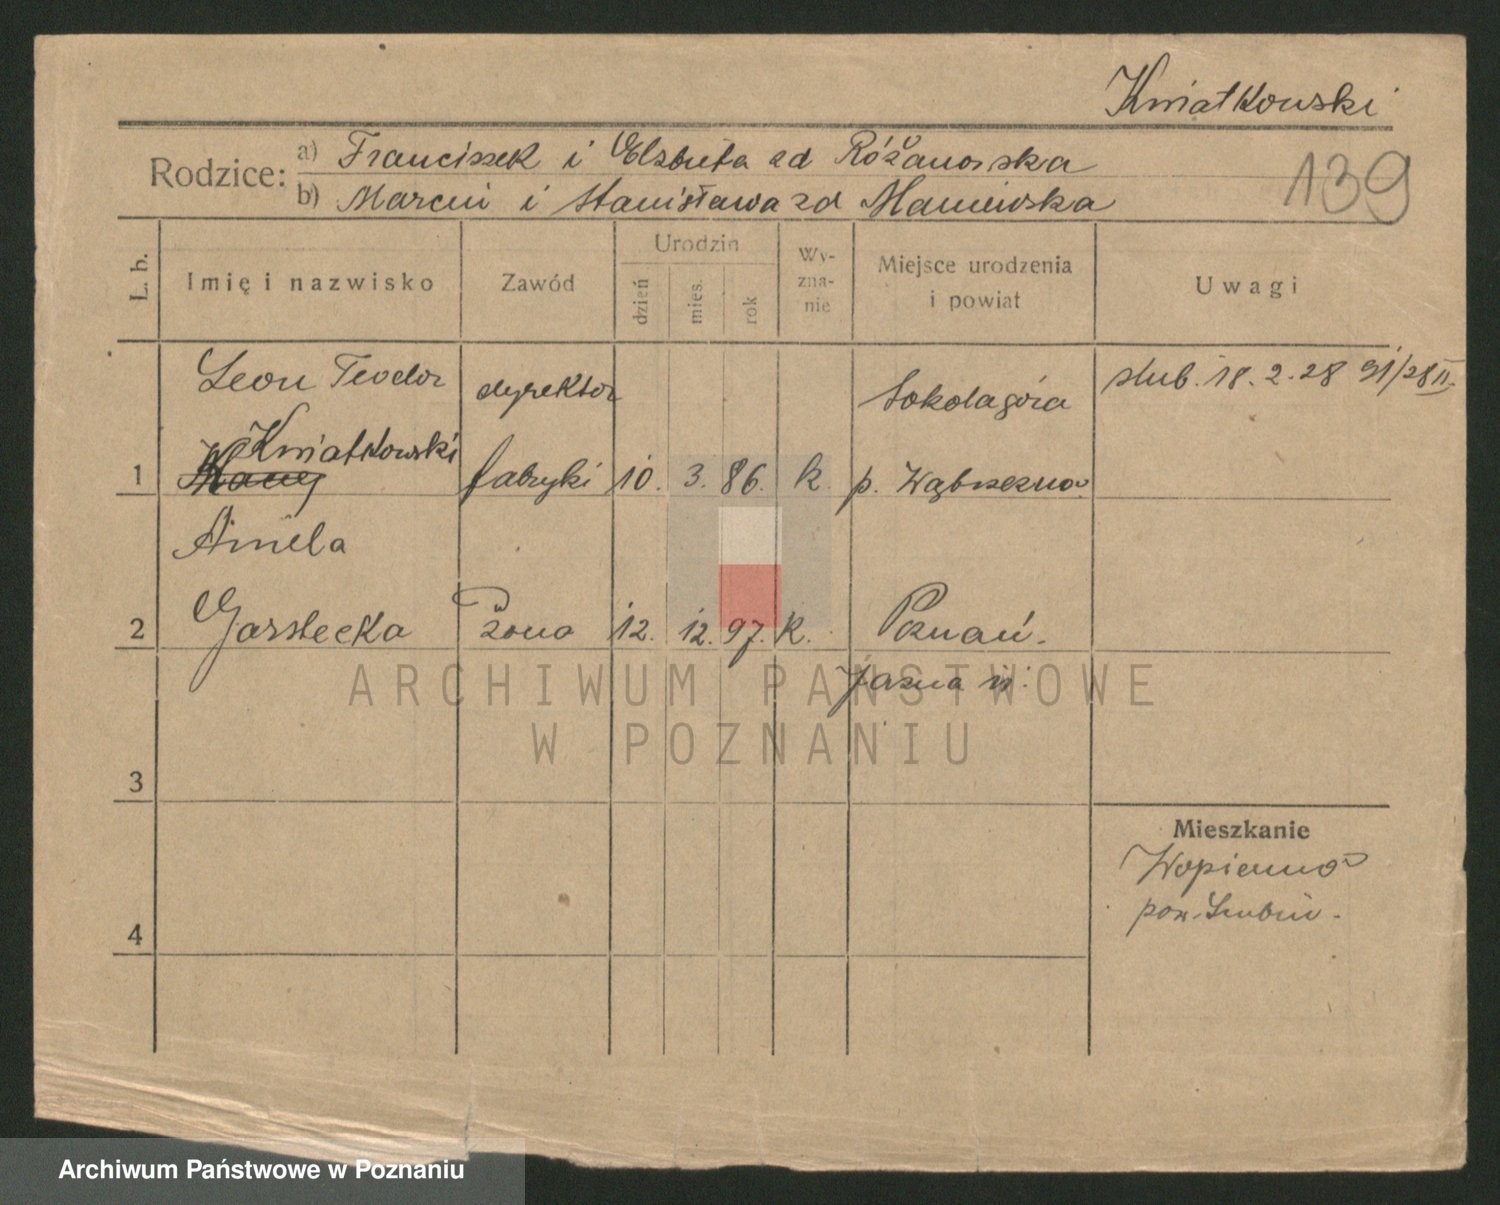 Kwiatkowski
Rodzice: a) Franciszek i Elżbieta zd Różanowska
b) Marcin i Stanisława zd Maniewska
139
L. b. Imię i nazwisko Zawód Urodzin dzień mies. rok Wy-zna-nie Miejsce urodzenia i powiat Uwagi
Leon Teodor dyrektor Sokolagóra ślub. 18.2.28 91/28 II.
Kwiatkowski
1 fabryki 10. 3. 86. k. p. Wąbrzezno
Aniela
2 Garstecka żona 12. 12. 97. k. Poznań.
Jasna 11.
ARCHIWUM PAŃSTWOWE
W POZNANIU
3
Mieszkanie
Wapienno
pow. Szubin.
4
Archiwum Państwowe w Poznaniu